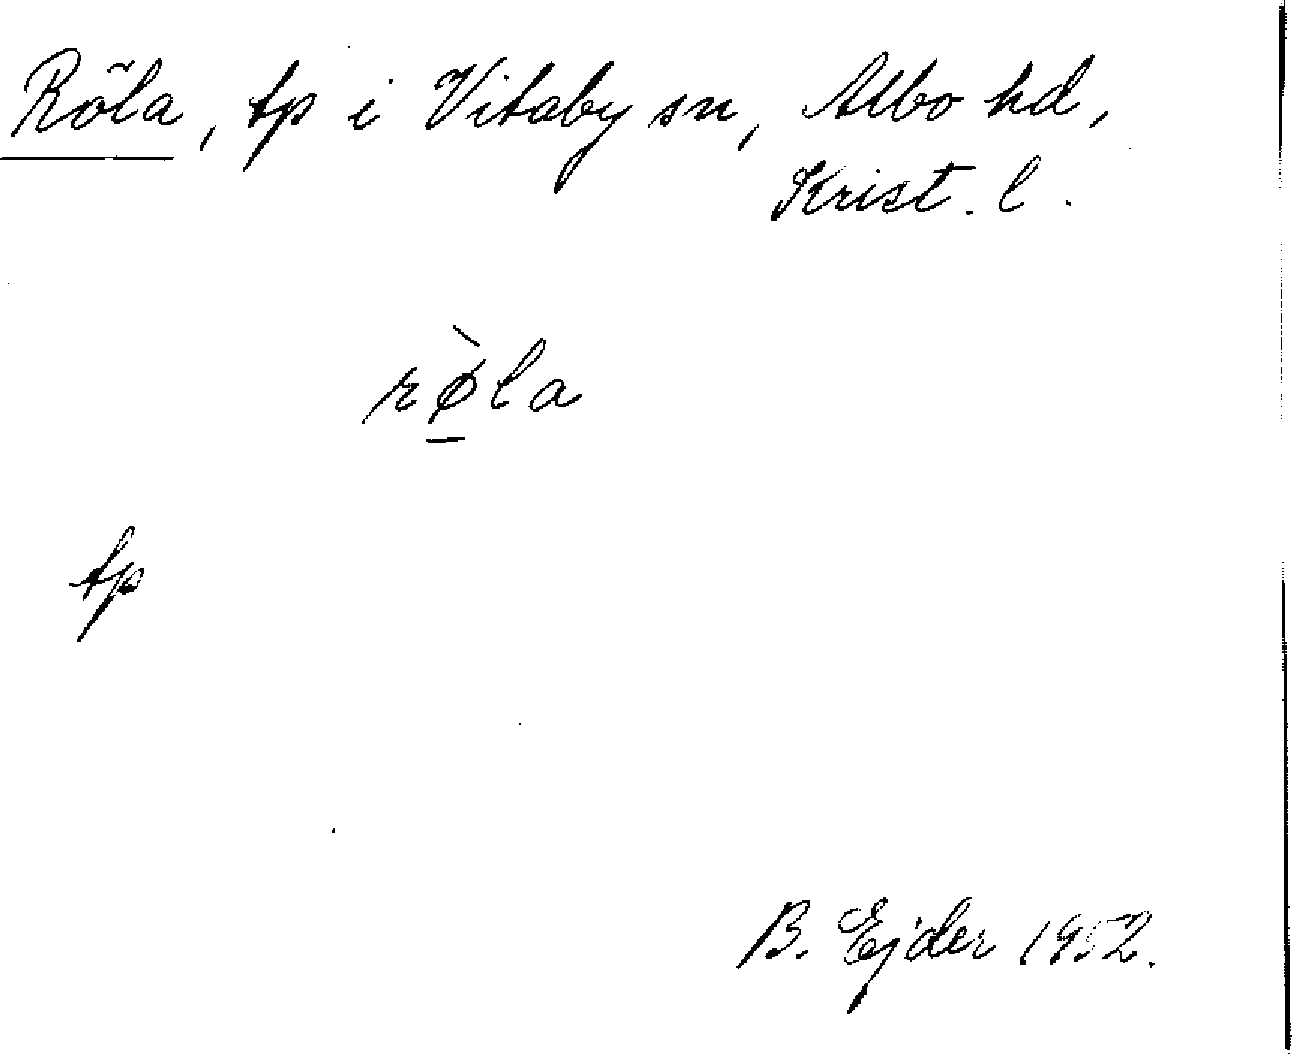 Röla, tp i Vitaby sn, Albo hd,
Krist. l.
rø̱̀la
tp
B. Ejder 1952.